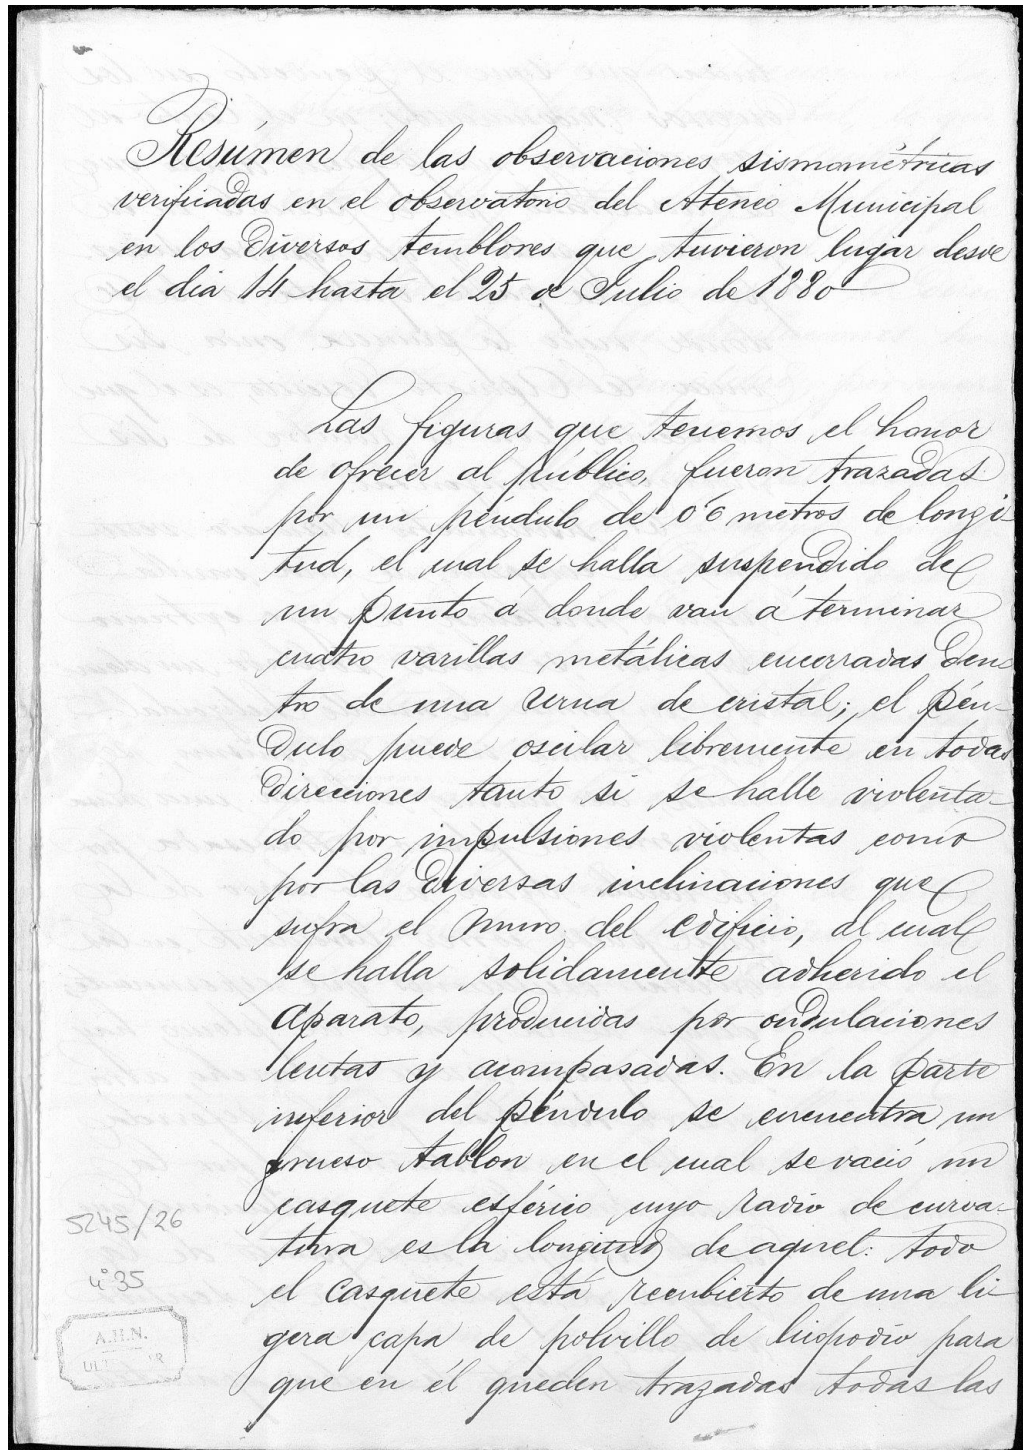 Resúmen de las observaciones sismométricas
verificadas en el observatorio del Ateneo Municipal
en los diversos temblores que tuvieron lugar desde
el dia 14 hasta el 25 de Julio de 1880
Las figuras que tenemos el honor
de ofrecer al público, fueron trazadas
por un péndulo de 0'6 metros de longi-
tud, el cual se halla suspendido de
un punto á donde van á terminar
cuatro varillas metálicas encerradas den-
tro de una urna de cristal; el pén-
dulo puede oscilar libremente en todas
direcciones tanto si se halle violenta-
do por impulsiones violentas como
por las diversas inclinaciones que
sufra el muro del edificio, al cual
se halla solidamente adherido el
aparato, producidas por ondulaciones
lentas y acompasadas. En la parte
inferior del péndulo se encuentra un
grueso tablon en el cual se vació un
casquete esférico cuyo radio de curva-
tura es la longitud de aquel: todo
el casquete está recubierto de una li-
gera capa de polvillo de licopodio para
que en él queden trazadas todas las
5245/26
nº 35
A.H.N.